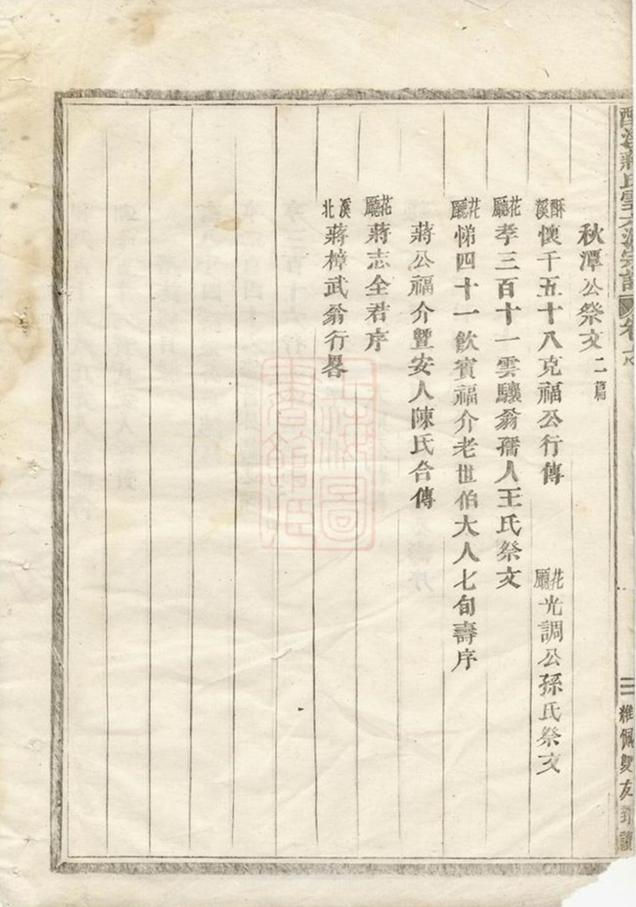 秋潭公祭文 二篇
酥溪 懷千五十八克福公行傳 花廳 光調公孫氏祭文
花廳 孝三百十一雲驤翁孺人王氏祭文
花廳 悌四十一飲賓福介老世伯大人七旬壽序
蔣公福介暨安人陳氏合傳
花廳 蔣志全君序
溪北 蔣樟武翁行畧